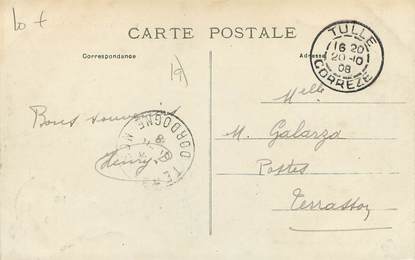 Lot
CARTE POSTALE
Correspondance
Adresse
TULLE
16 20
20-10
08
CORREZE
Bons souvenirs
Henry
DORDOGNE
Melle
M. Galarza
Postes
Terrasson